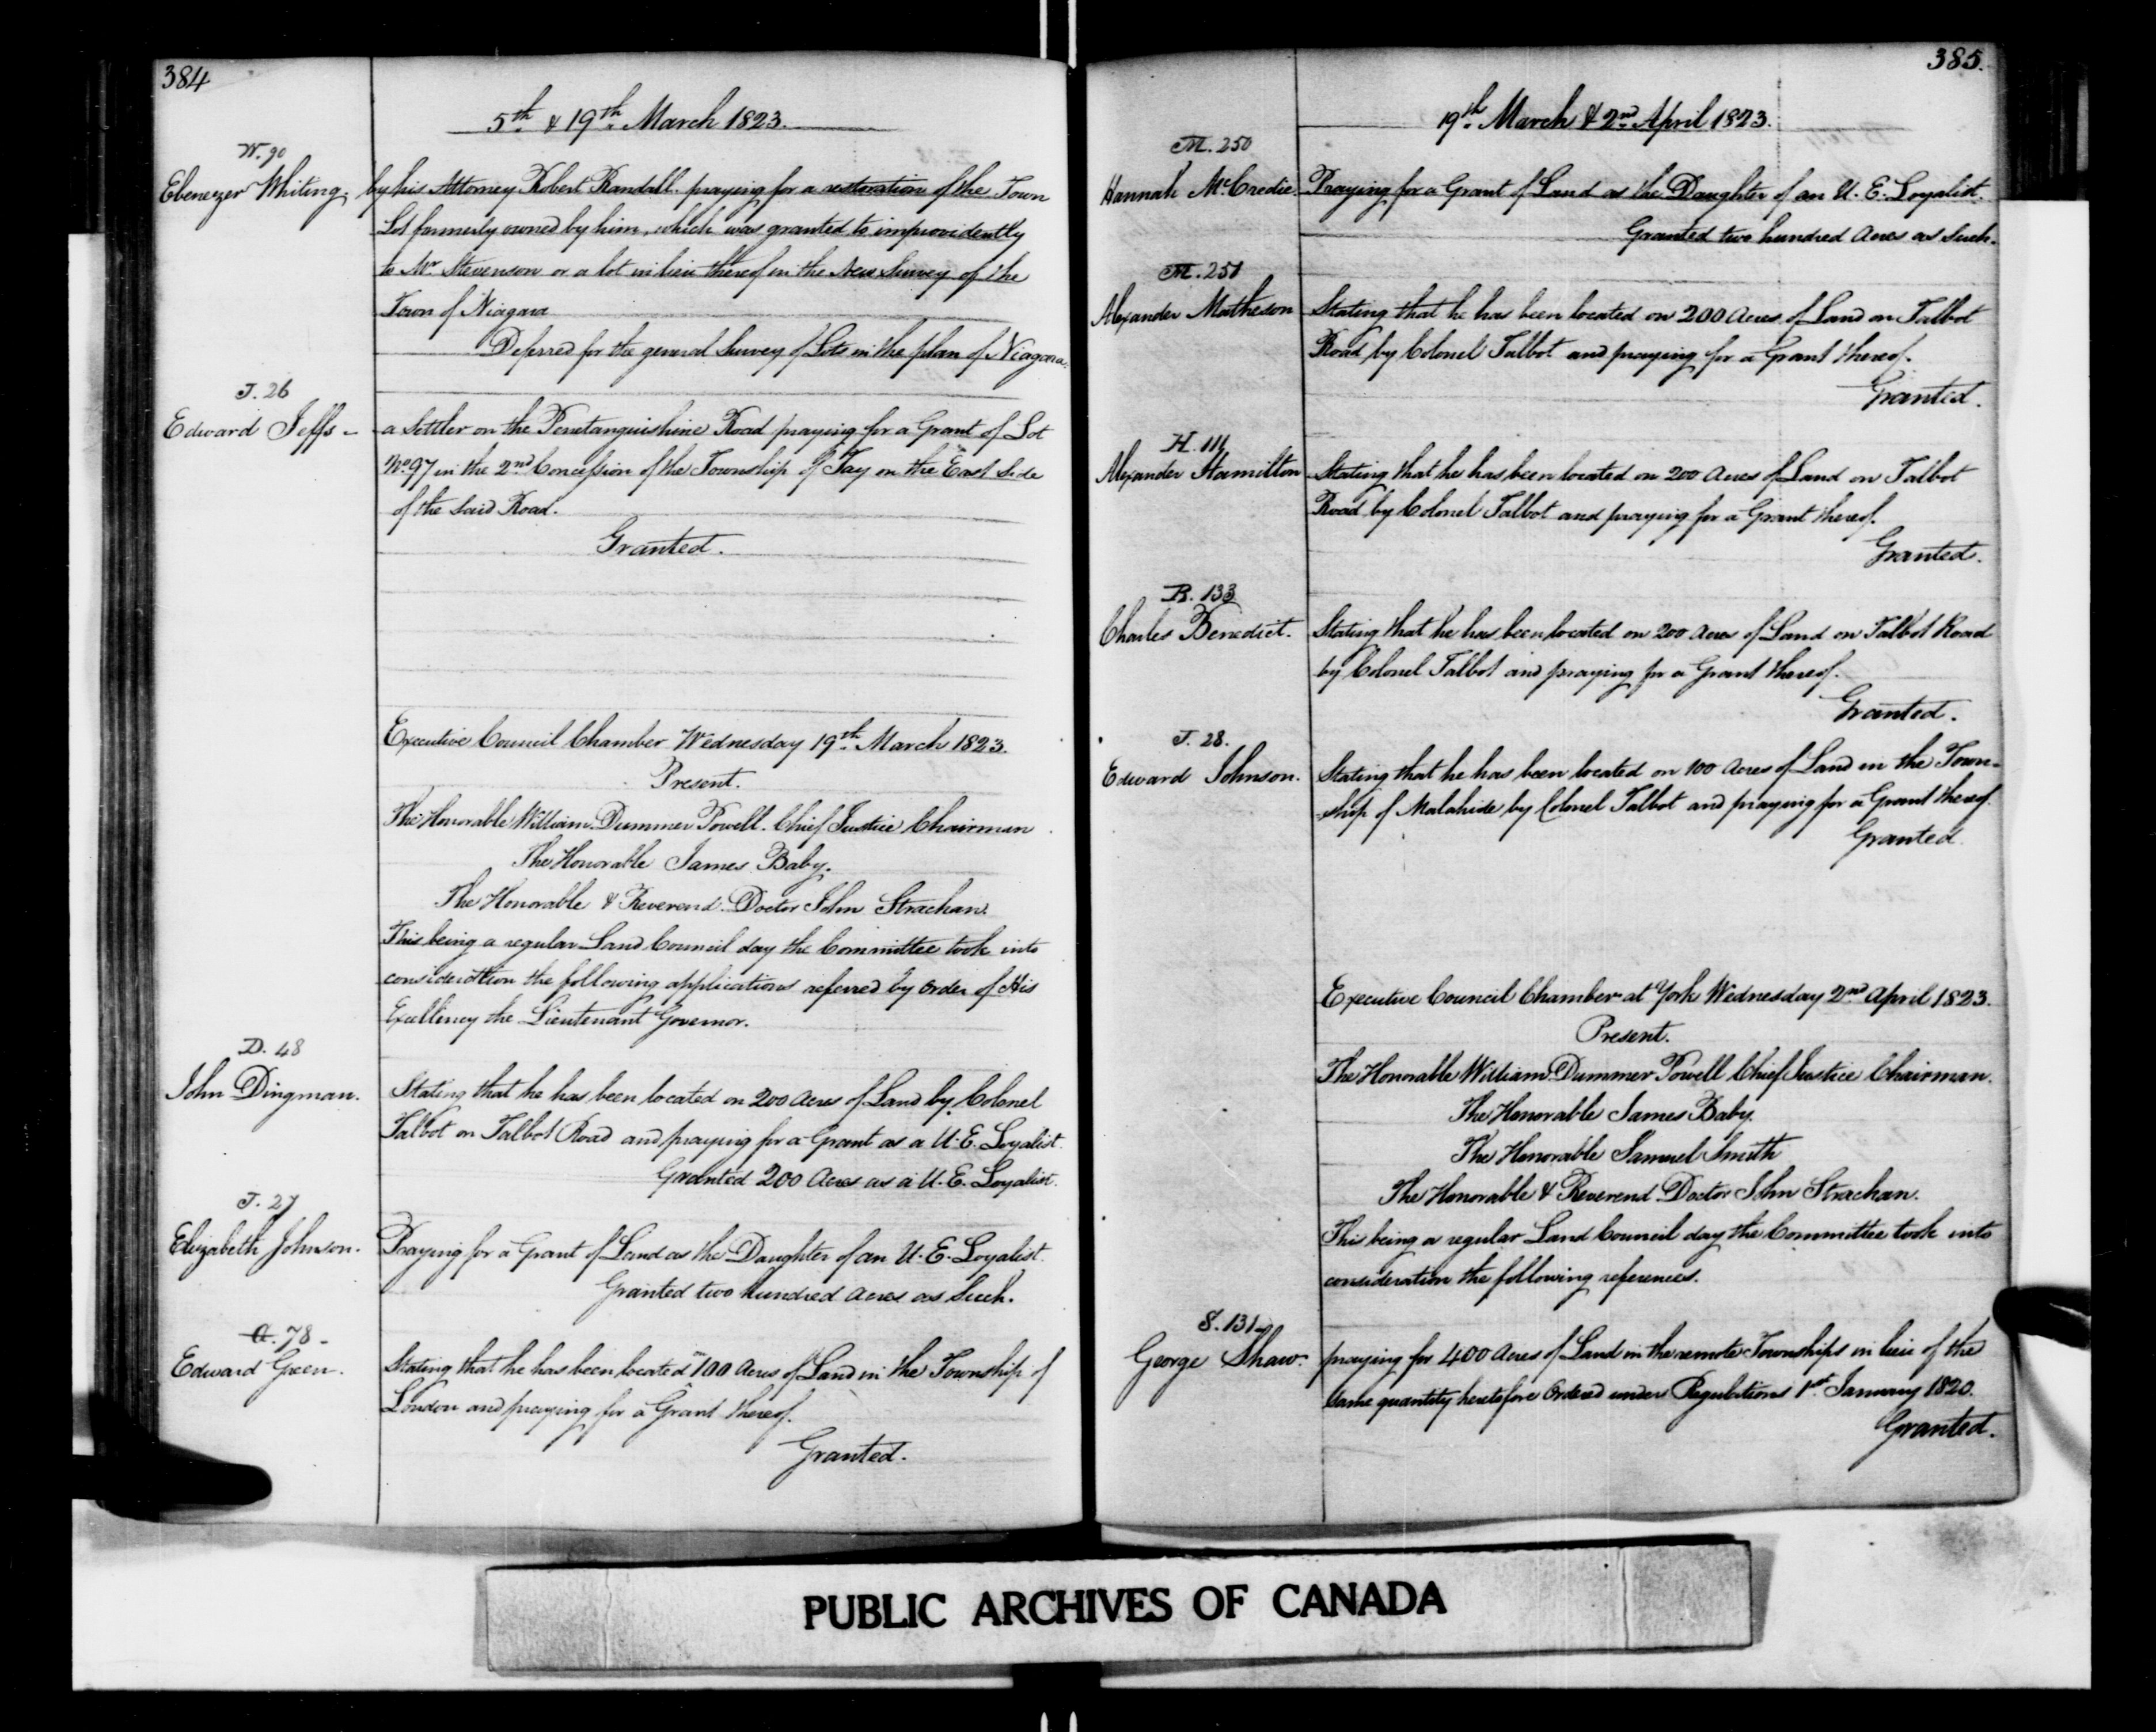 384
5th & 19th March 1823.
W. 90
Ebenezer Whiting, by his Attorney Robert Randall. praying for a restoration of the Town
Lot formerly owned by him, which was granted to improvidently
to Mr. Stevenson or a lot in lieu thereof in the New Survey of the
Town of Niagara
Deferred for the general Survey of Lots in the plan of Niagara.
J. 26
Edward Jeffs - a Settler on the Penetanguishine Road praying for a Grant of Lot
No. 97 in the 2nd Concession of the Township of Tay on the East Side
of the said Road.
Granted.
Executive Council Chamber Wednesday 19th March 1823.
Present.
The Honorable William Dummer Powell. Chief Justice Chairman
The Honorable James Baby.
The Honorable & Reverend Doctor John Strachan.
This being a regular Land Council day the Committee took into
consideration the following applications referred by order of His
Excellency the Lieutenant Governor.
D. 48
John Dingman. Stating that he has been located on 200 Acres of Land by Colonel
Talbot on Talbot Road and praying for a Grant as a U. E. Loyalist.
Granted 200 Acres as a U. E. Loyalist.
J. 27
Elizabeth Johnson. Praying for a Grant of Land as the Daughter of an U. E. Loyalist.
Granted two hundred Acres as Such.
78 -
Edward Green. Stating that he has been located on 100 Acres of Land in the Township of
London and praying for a Grant thereof.
Granted.
385.
19th March & 2nd April 1823.
M. 250
Hannah McCredie. Praying for a Grant of Land as the Daughter of an U. E. Loyalist.
Granted two hundred Acres as Such.
M. 251
Alexander Matheson Stating that he has been located on 200 Acres of Land on Talbot
Road by Colonel Talbot and praying for a Grant thereof.
Granted.
H. 111
Alexander Hamilton Stating that he has been located on 200 Acres of Land on Talbot
Road by Colonel Talbot and praying for a Grant thereof.
Granted.
B. 133
Charles Benedict. Stating that he has been located on 200 Acres of Land on Talbot Road
by Colonel Talbot and praying for a Grant thereof.
Granted.
J. 28.
Edward Johnson. Stating that he has been located on 100 Acres of Land in the Town-
-ship of Malahide by Colonel Talbot and praying for a Grant thereof.
Granted
Executive Council Chamber at York Wednesday 2nd April 1823.
Present.
The Honorable William Dummer Powell Chief Justice Chairman.
The Honorable James Baby.
The Honorable Samuel Smith
The Honorable & Reverend Doctor John Strachan.
This being a regular Land Council day the Committee took into
consideration the following references.
S. 131
George Shaw. praying for 400 Acres of Land in the remote Townships in lieu of the
same quantity heretofore Ordered under Regulations 1st January 1820.
Granted.
PUBLIC ARCHIVES OF CANADA